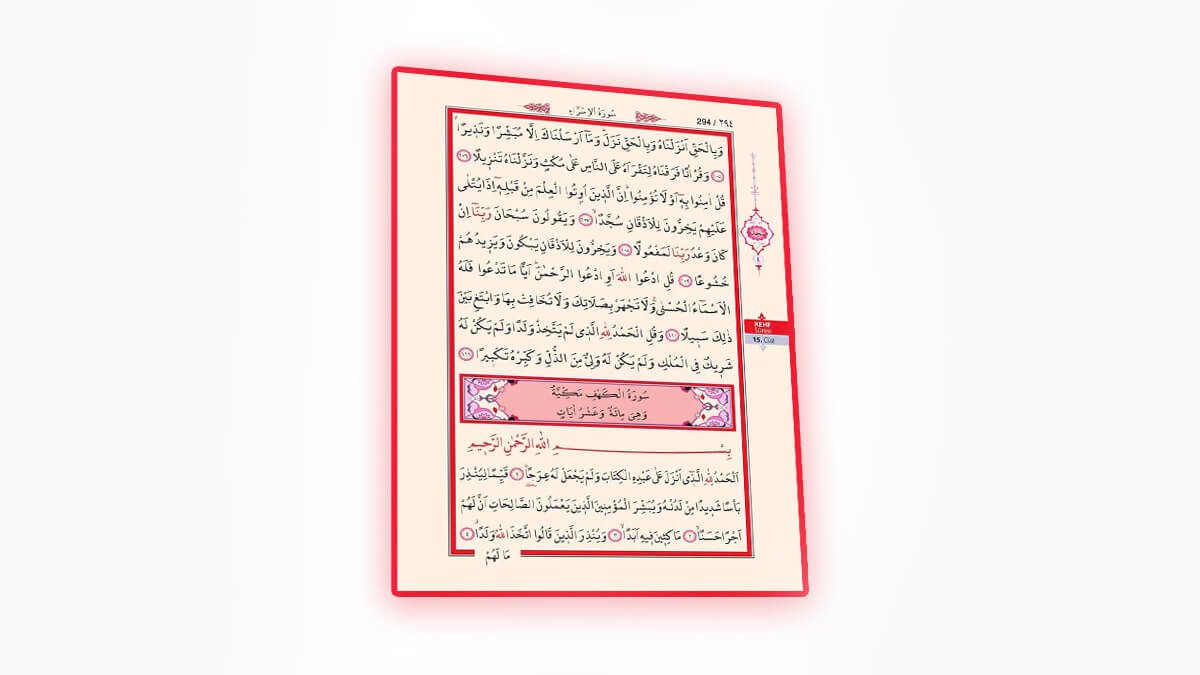 سُورَةُ الْاِسْرَاءِ
294 / ٢٩٤
وَبِالْحَقِّ اَنْزَلْنَاهُ وَبِالْحَقِّ نَزَلَۜ وَمَٓا اَرْسَلْنَاكَ اِلَّا مُبَشِّرًا وَنَذِيرًاۢ
﴿١٠٥﴾ وَقُرْاٰنًا فَرَقْنَاهُ لِتَقْرَاَهُ عَلَى النَّاسِ عَلٰى مُكْثٍ وَنَزَّلْنَاهُ تَنْزِيلًا ﴿١٠٦﴾
قُلْ اٰمِنُوا بِهٖٓ اَوْ لَا تُؤْمِنُواۜ اِنَّ الَّذِينَ اُو۫تُوا الْعِلْمَ مِنْ قَبْلِهٖٓ اِذَا يُتْلٰى
عَلَيْهِمْ يَخِرُّونَ لِلْاَذْقَانِ سُجَّدًاۙ ﴿١٠٧﴾ وَيَقُولُونَ سُبْحَانَ رَبِّنَٓا اِنْ
كَانَ وَعْدُ رَبِّنَا لَمَفْعُولًا ﴿١٠٨﴾ وَيَخِرُّونَ لِلْاَذْقَانِ يَبْكُونَ وَيَزِيدُهُمْ
خُشُوعًا ﴿١٠٩﴾ قُلِ ادْعُوا اللّٰهَ اَوِ ادْعُوا الرَّحْمٰنَۜ اَيًّا مَا تَدْعُوا فَلَهُ
الْاَسْمَٓاءُ الْحُسْنٰىۚ وَلَا تَجْهَرْ بِصَلَاتِكَ وَلَا تُخَافِتْ بِهَا وَابْتَغِ بَيْنَ
ذٰلِكَ سَبِيلًا ﴿١١٠﴾ وَقُلِ الْحَمْدُ لِلّٰهِ الَّذِى لَمْ يَتَّخِذْ وَلَدًا وَلَمْ يَكُنْ لَهُ
شَرِيكٌ فِى الْمُلْكِ وَلَمْ يَكُنْ لَهُ وَلِىٌّ مِنَ الذُّلِّ وَكَبِّرْهُ تَكْبِيرًا ﴿١١١﴾
سُورَةُ الْكَهْفِ مَكِّيَّةٌ
وَهِىَ مِائَةٌ وَعَشْرُ اٰيَاتٍ
بِسْمِ اللّٰهِ الرَّحْمٰنِ الرَّحِيمِ
اَلْحَمْدُ لِلّٰهِ الَّذِٓى اَنْزَلَ عَلٰى عَبْدِهِ الْكِتَابَ وَلَمْ يَجْعَلْ لَهُ عِوَجًاۜ ﴿١﴾ قَيِّمًا لِيُنْذِرَ
بَاْسًا شَدِيدًا مِنْ لَدُنْهُ وَيُبَشِّرَ الْمُؤْمِنِينَ الَّذِينَ يَعْمَلُونَ الصَّالِحَاتِ اَنَّ لَهُمْ
اَجْرًا حَسَنًاۙ ﴿٢﴾ مَاكِثِينَ فِيهِ اَبَدًاۙ ﴿٣﴾ وَيُنْذِرَ الَّذِينَ قَالُوا اتَّخَذَ اللّٰهُ وَلَدًاۗ ﴿٤﴾
مَا لَهُمْ
KEHF
SÛRESİ
15. Cüz